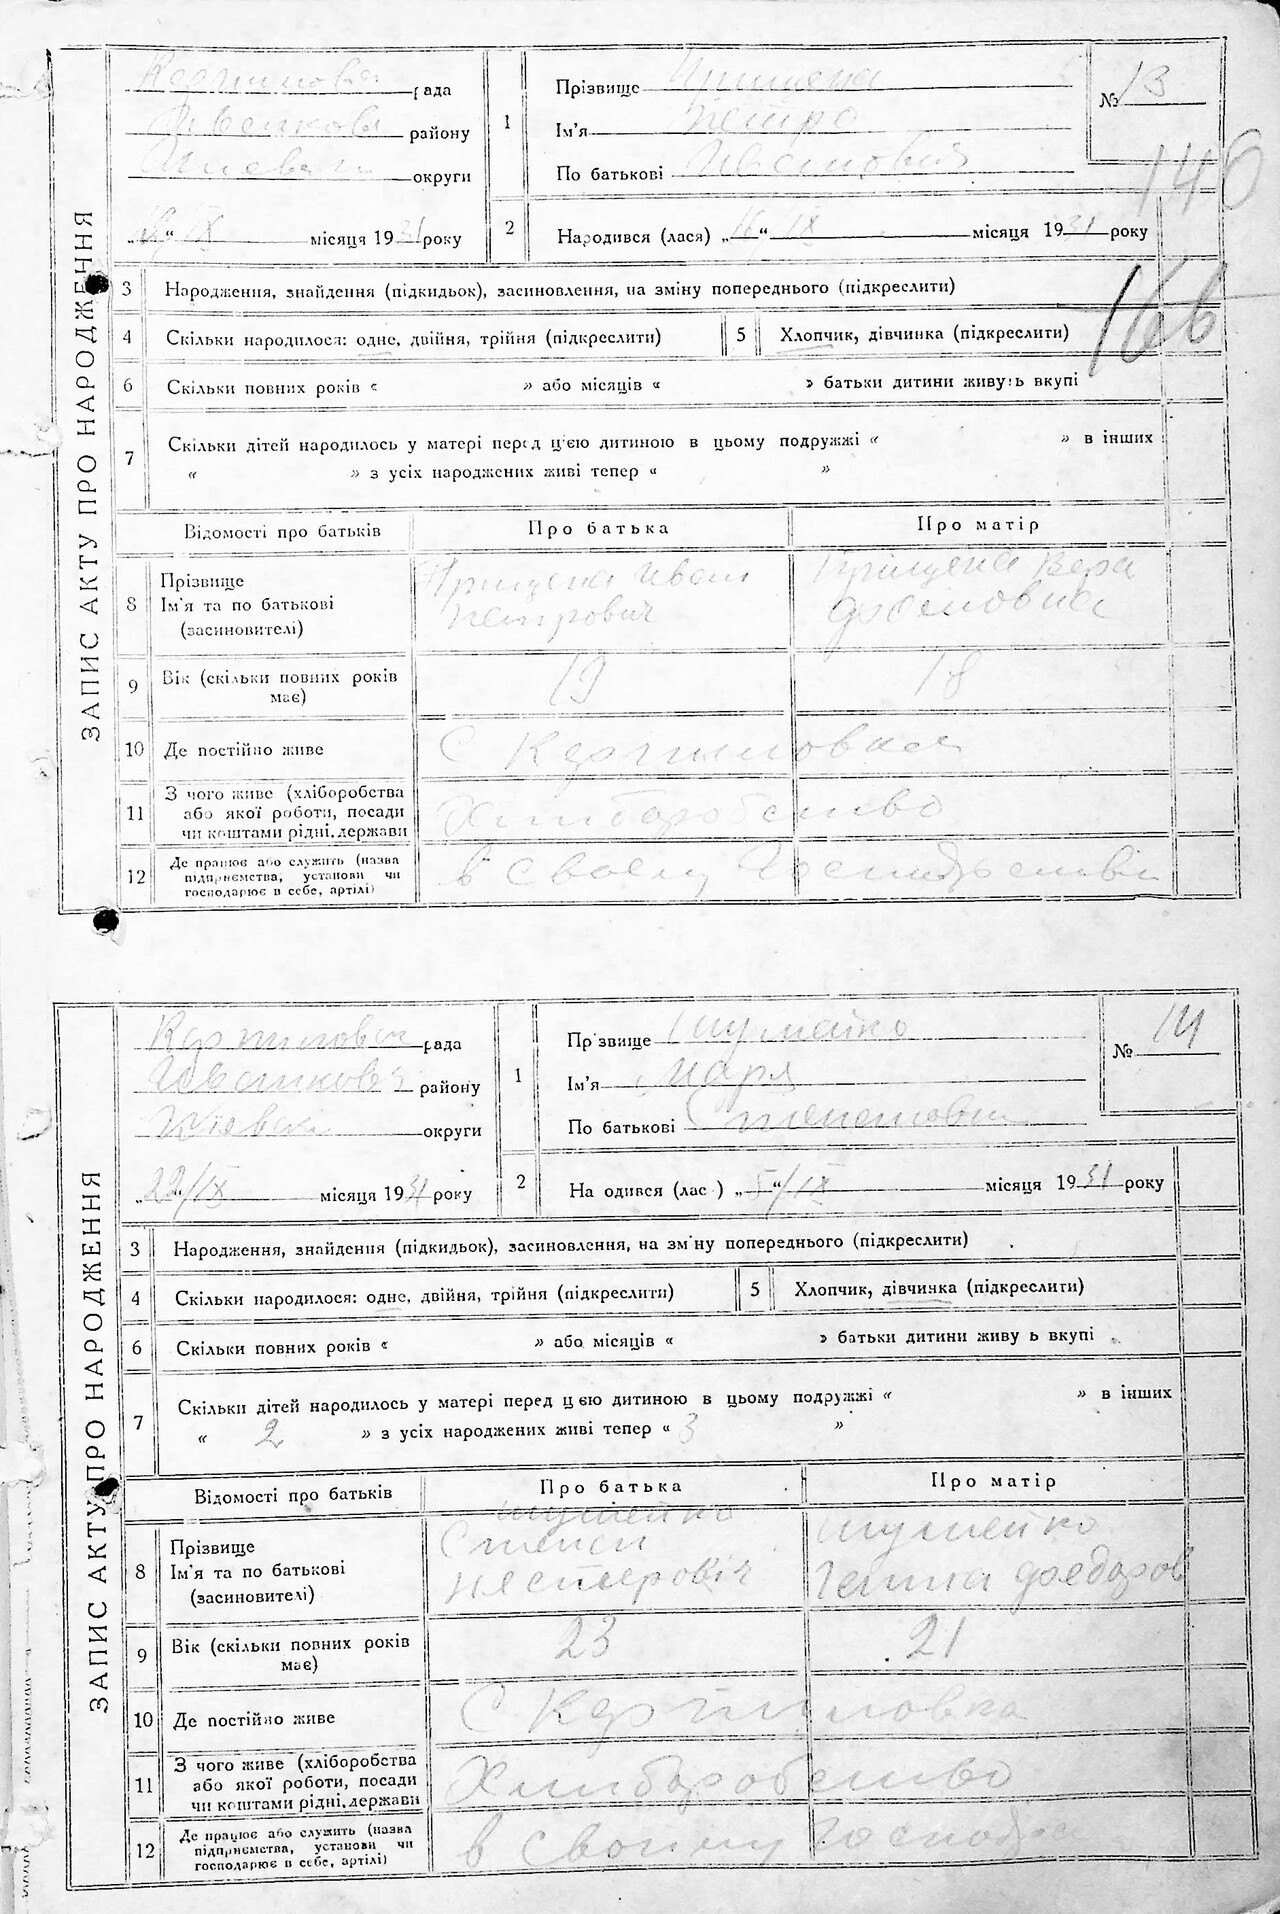 ЗАПИС АКТУ ПРО НАРОДЖЕННЯ
рада
району
округи
„16“ IX місяця 1931 року
1
Прізвище
Ім'я Петро
По батькові Івановив
№ 13
146
166
2 Народився (лася) „16“ IX місяця 1931 року
3 Народження, знайдення (підкидьок), засиновлення, на зміну попереднього (підкреслити)
4 Скільки народилося: одне, двійня, трійня (підкреслити) 5 Хлопчик, дівчинка (підкреслити)
6 Скільки повних років « » або місяців « » батьки дитини живуть вкупі
7 Скільки дітей народилось у матері перед цією дитиною в цьому подружжі « » в інших
« » з усіх народжених живі тепер « »
Відомості про батьків Про батька Про матір
8 Прізвище
Ім'я та по батькові
(засиновителі)
Прищепа Іван
Петрович
Прищепа Вера
9 Вік (скільки повних років має) 19 18
10 Де постійно живе С
11 З чого живе (хліборобства
або якої роботи, посади
чи коштами рідні, держави
Хлиборобство
12 Де працює або служить (назва
підприємства, установи чи
господарює в себе, артілі)
в своему
ЗАПИС АКТУ ПРО НАРОДЖЕННЯ
рада
району
округи
„22“/IX місяця 1931 року
1
Прізвище Шумейко
Ім'я Маря
По батькові Степановна
№ 14
2 Народився (лась) „5“/IX місяця 1931 року
3 Народження, знайдення (підкидьок), засиновлення, на зміну попереднього (підкреслити)
4 Скільки народилося: одне, двійня, трійня (підкреслити) 5 Хлопчик, дівчинка (підкреслити)
6 Скільки повних років « » або місяців « » батьки дитини живуть вкупі
7 Скільки дітей народилось у матері перед цією дитиною в цьому подружжі « » в інших
« 2 » з усіх народжених живі тепер « 3 »
Відомості про батьків Про батька Про матір
8 Прізвище
Ім'я та по батькові
(засиновителі)
Шумейко
Степан
Нестеровіч
Шумейко
Ганна Федоров
9 Вік (скільки повних років має) 23 21
10 Де постійно живе С
11 З чого живе (хліборобства
або якої роботи, посади
чи коштами рідні, держави
Хлиборобство
12 Де працює або служить (назва
підприємства, установи чи
господарює в себе, артілі)
в своему